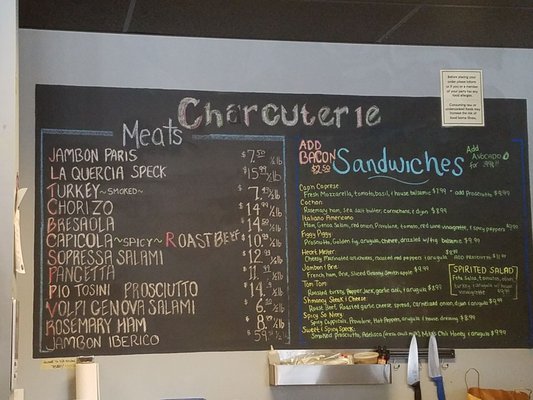 Charcuterie
Meats
JAMBON PARIS $7.50 ½lb
LA QUERCIA SPECK $15.99 ½lb
TURKEY ~SMOKED~ $7.
CHORIZO $14.
BRESAOLA $14.
CAPICOLA ~SPICY~ ROAST BEEF
SOPRESSA SALAMI $12.
PANCETTA $11.
PIO TOSINI PROSCIUTTO $14.
VOLPI GENOVA SALAMI $6.
ROSEMARY HAM $8.
JAMBON IBERICO $59.
ADD
BACON
$2.50
Sandwiches
Add
AVOCADO
for .99¢!!
Capn Caprese
Fresh Mozzarella, tomato, basil, & house balsamic $7.99 - add Prosciutto $9.99
Cochon
Rosemary ham, sea salt butter, cornichons, & dijon $8.99
Italiano Americano
Ham, Genoa Salami, red onion, Provolone, tomato, red wine vinaigrette, & spicy peppers
Figgy Piggy
Prosciutto, Golden fig, arugula, balsamic $9.99
Heart Melter
Cheesy Marinated artichokes, roasted red peppers & arugula ADD PROSCIUTTO $11.99
Jambon & Brie
French ham, Brie, Sliced Granny Smith apple $9.99
Tom Tom
Roasted turkey, Pepper Jack, garlic aoli, & arugula $8.99
Shmancy Steak & Cheese
Roast Beef, Roasted garlic cheese spread, caramelized onion, dijon & arugula $9.99
Spicy So Nicey
Spicy Cappicola, Provolone, Hot Pepper, arugula & house dressing $8.99
Sweet & Spicy Speck
Smoked Prosciutto, Mikes Chili Honey & arugula $9.99
SPIRITED SALAD
Feta, Salsa, tomatoes, olives,
turkey & arugula w/ house
vinaigrette
Before placing your
order please inform
us if you or a member
of your party has any
food allergies.
Consuming raw or
undercooked foods may
increase the risk of
food borne illness.